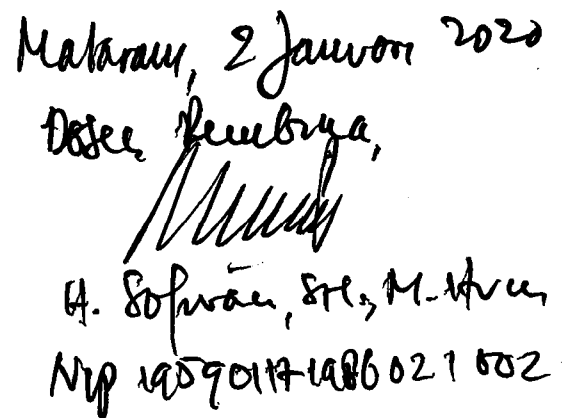 Mataram, 2 Januari 2020
Dosen Pembina,
H. Sofwan, SH., M.Hum
Nip 195901171986021002